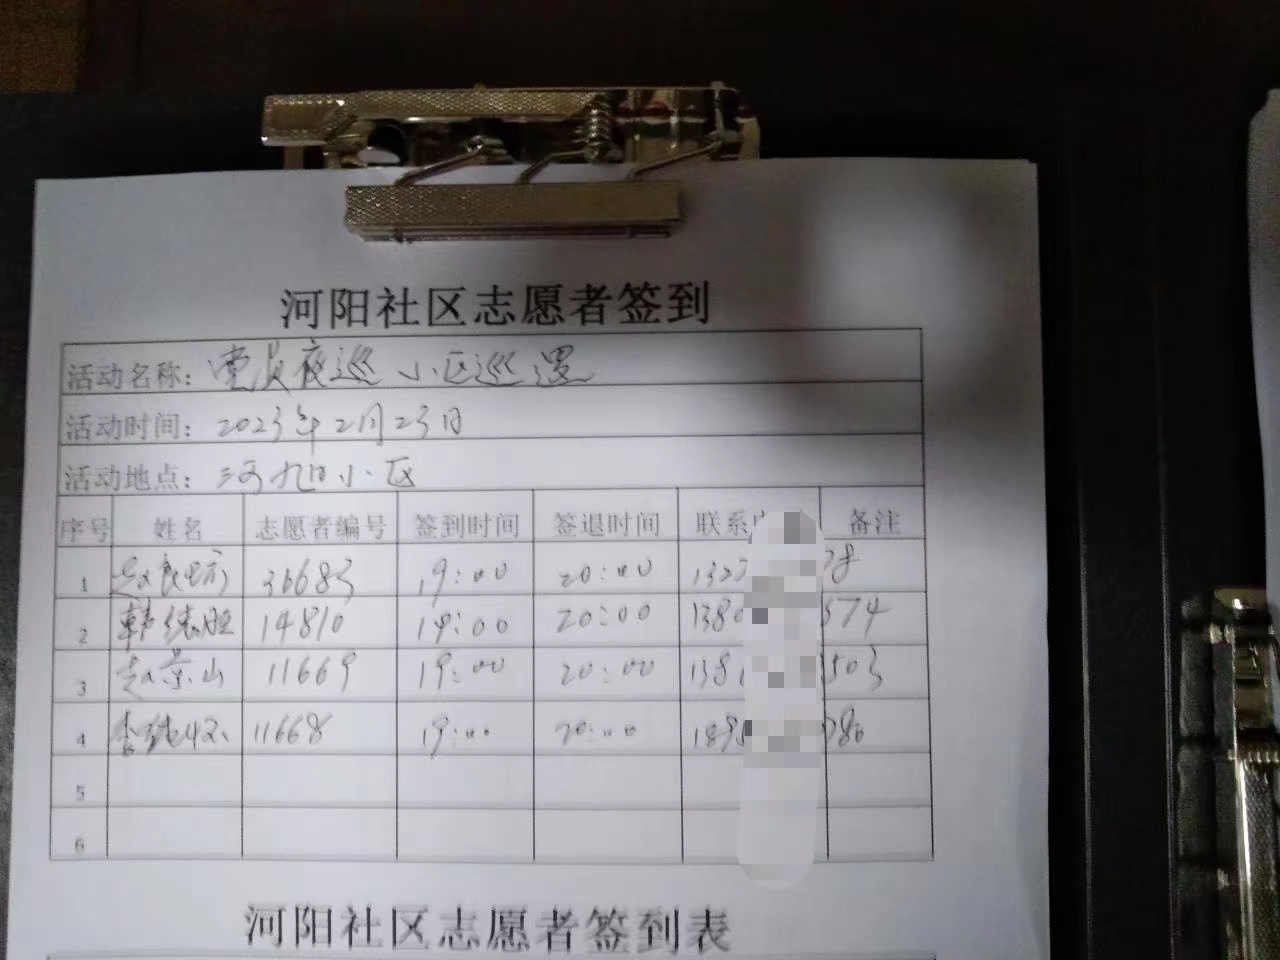 河阳社区志愿者签到
活动名称：党员夜巡 小区巡逻
活动时间：2023年2月23日
活动地点：河阳小区
序号 姓名 志愿者编号 签到时间 签退时间 联系 备注
1 赵良 36683 19:00 20:00 132 78
2 韩德胜 14810 19:00 20:00 138 574
3 赵景山 11669 19:00 20:00 138 503
4 李 11668 19:00 20:00 189 786
5
6
河阳社区志愿者签到表